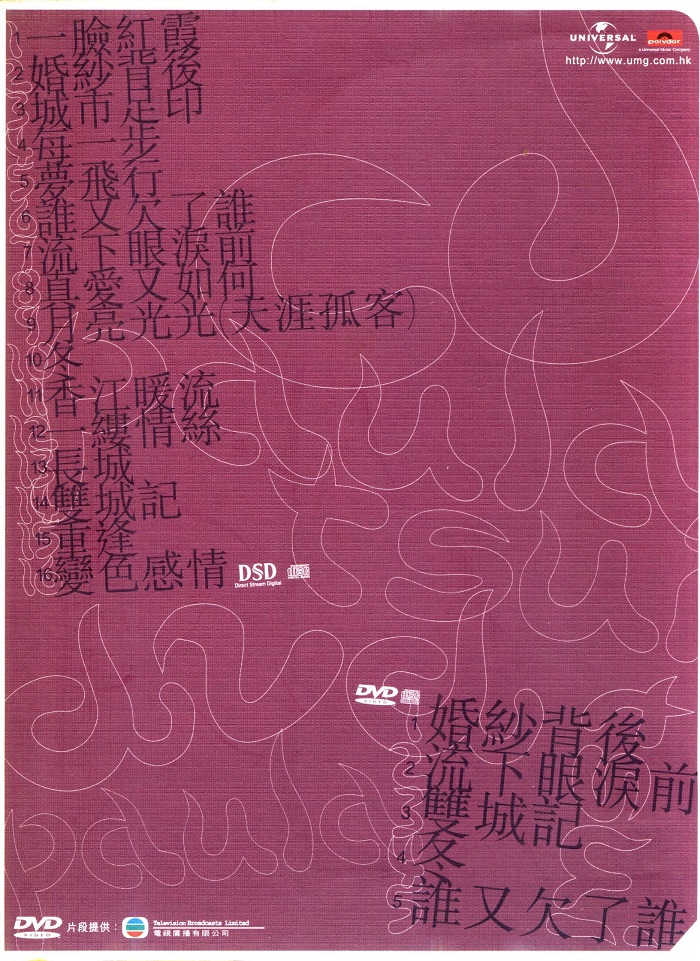 1 一臉紅霞
2 婚紗背後
3 城市足印
4 每一步
5 夢飛行
6 誰又欠了誰
7 流下眼淚前
8 真愛又如何
9 月亮光光(天涯孤客)
10 冬
11 香江暖流
12 一縷情絲
13 長城
14 雙城記
15 重逢
16 變色感情
DSD
Direct Stream Digital
UNIVERSAL
polydor
a Universal Music Company
http://www.umg.com.hk
DVD
VIDEO
1 婚紗背後
2 流下眼淚前
3 雙城記
4 冬
5 誰又欠了誰
DVD
VIDEO
片段提供：
Television Broadcasts Limited
電視廣播有限公司
paula tsui